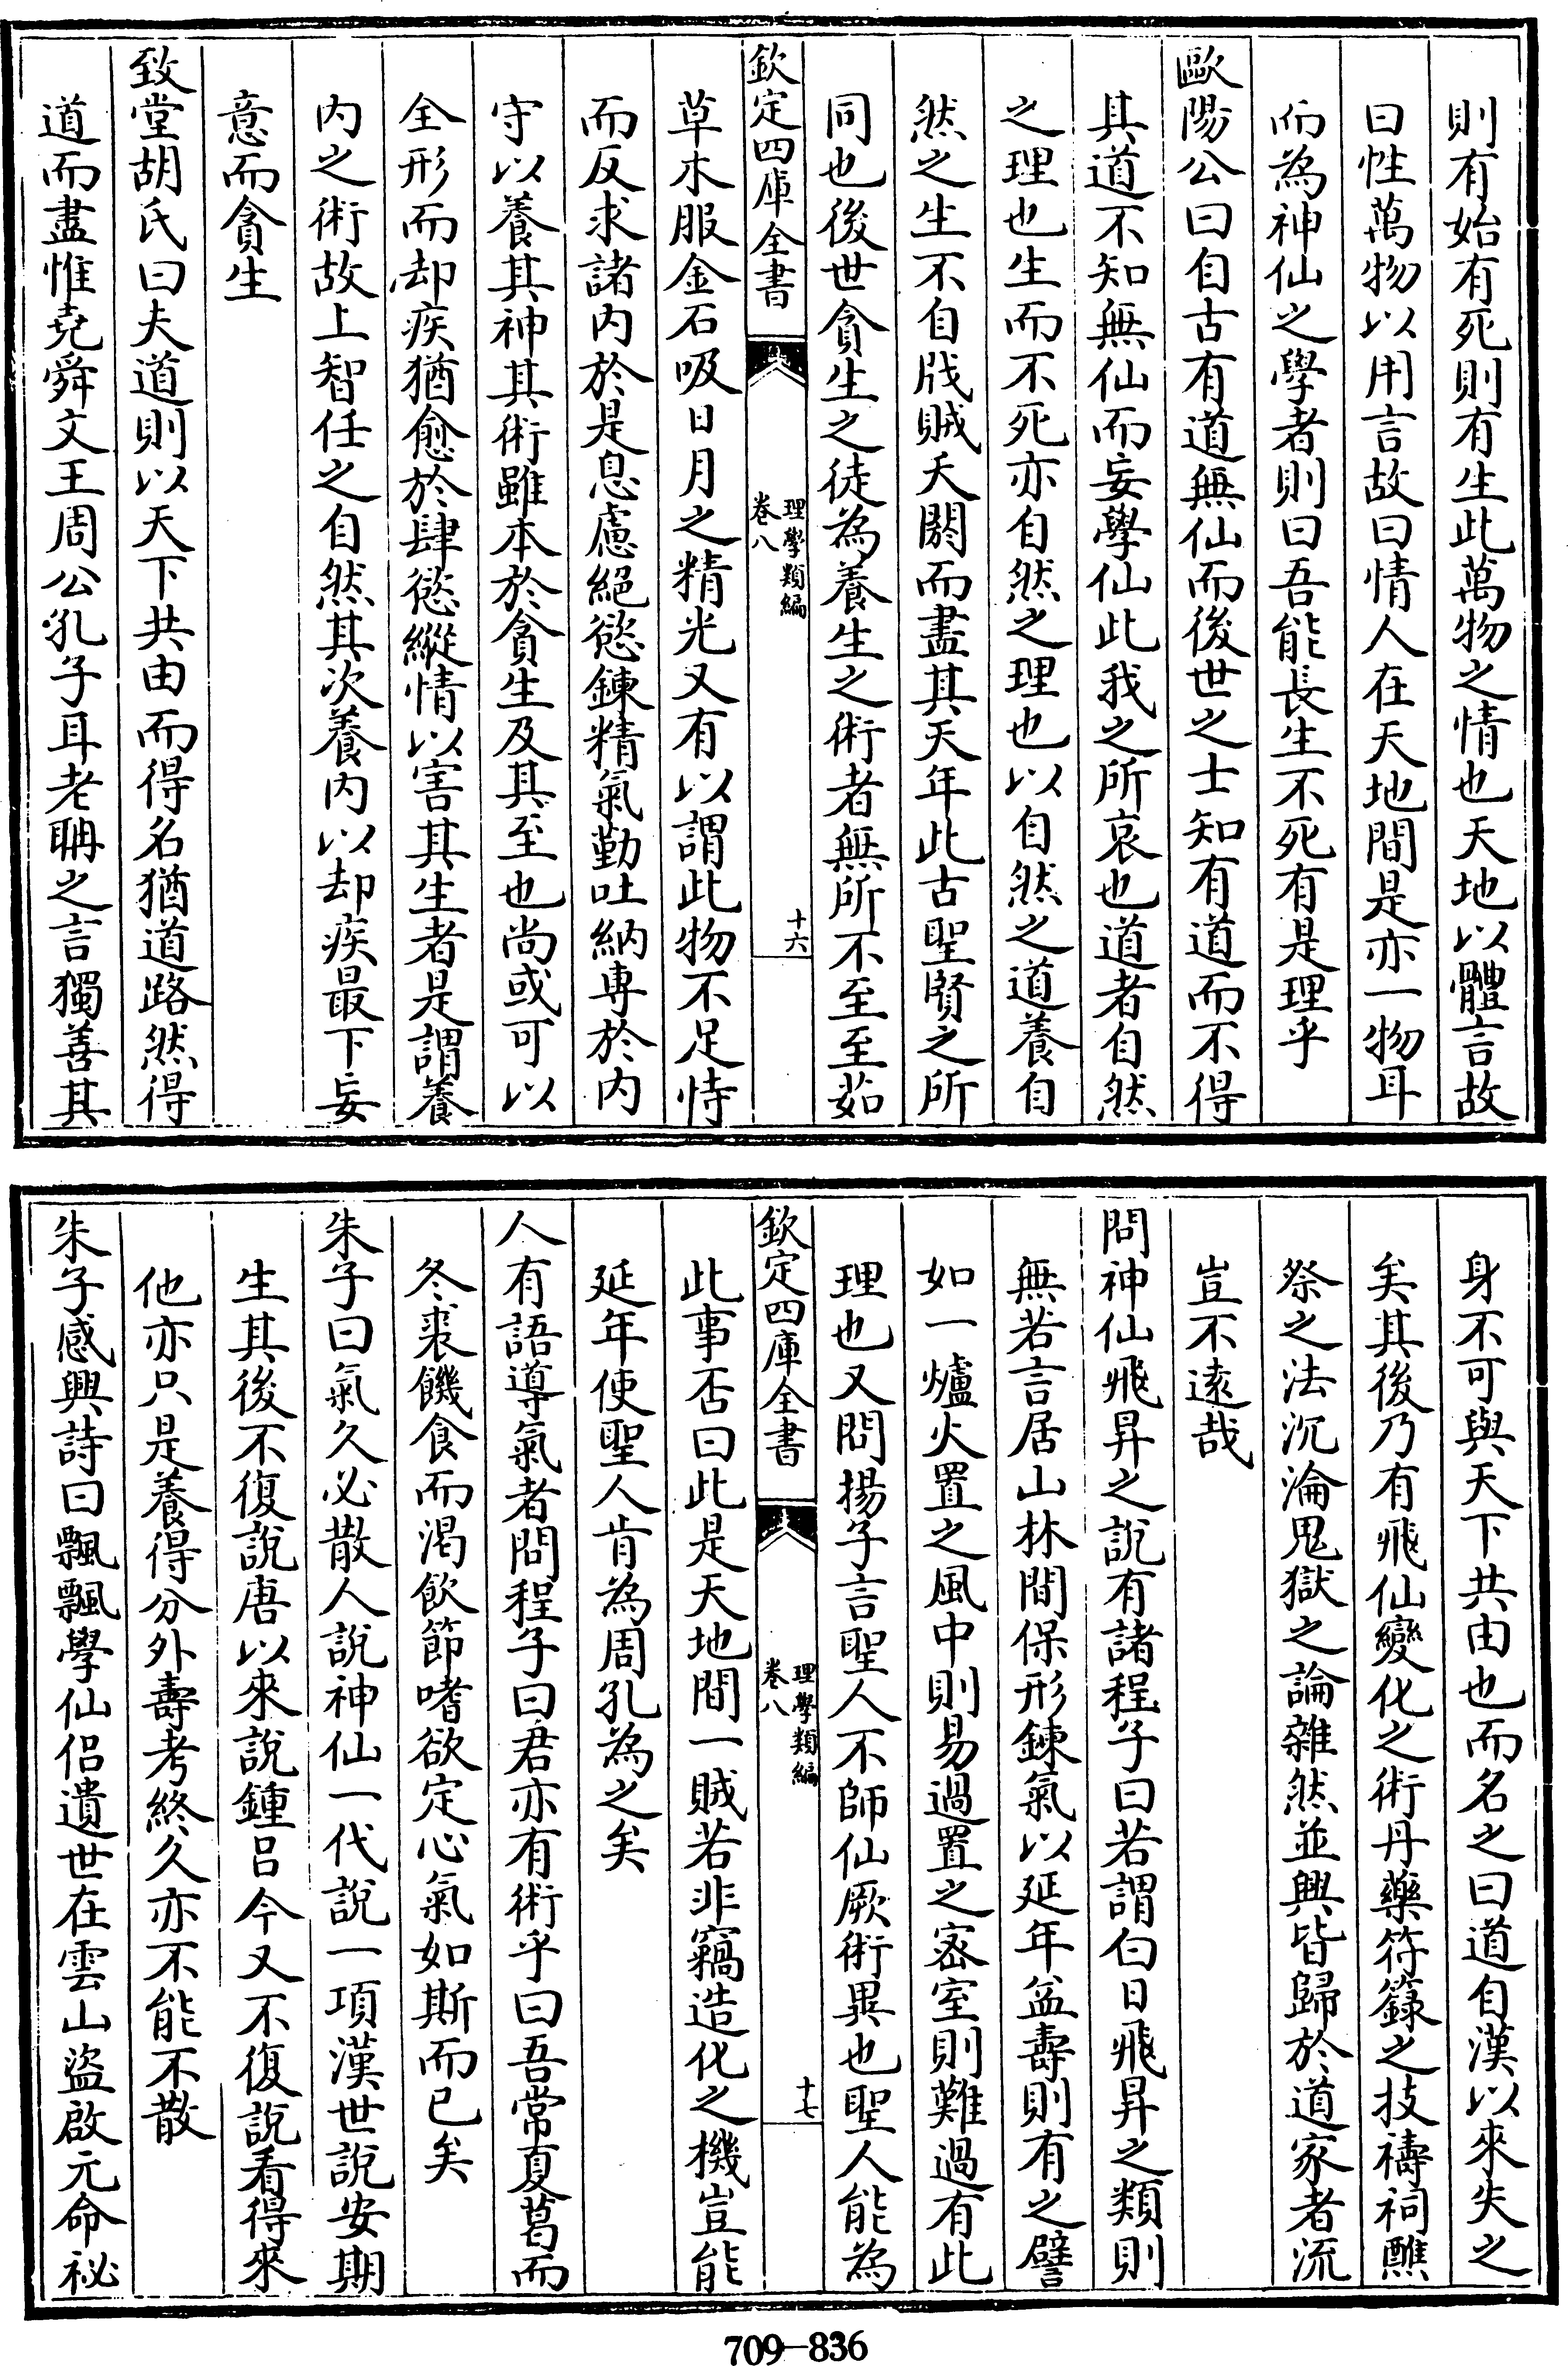 則有始有死則有生此萬物之情也天地以體言故
曰性萬物以用言故曰情人在天地間是亦一物耳
而為神仙之學者則曰吾能長生不死有是理乎
歐陽公曰自古有道無仙而後世之士知有道而不得
其道不知無仙而妄學仙此我之所哀也道者自然
之理也生而不死亦自然之理也以自然之道養自
然之生不自戕賊夭閼而盡其天年此古聖賢之所
同也後世貪生之徒為養生之術者無所不至至茹
欽定四庫全書
理學類編
卷八
十六
草木服金石吸日月之精光又有以謂此物不足恃
而反求諸內於是息慮絕慾鍊精氣勤吐納專於內
守以養其神其術雖本於貪生及其至也尚或可以
全形而却疾猶愈於肆慾縱情以害其生者是謂養
內之術故上智任之自然其次養內以却疾最下妄
意而貪生
致堂胡氏曰夫道則以天下共由而得名猶道路然得
道而盡惟堯舜文王周公孔子耳老聃之言獨善其
身不可與天下共由也而名之曰道自漢以來失之
矣其後乃有飛仙變化之術丹藥符籙之技禱祠醮
祭之法沉淪鬼獄之論雜然並興皆歸於道家者流
豈不遠哉
問神仙飛昇之說有諸程子曰若謂白日飛昇之類則
無若言居山林間保形鍊氣以延年益壽則有之譬
如一爐火置之風中則易過置之密室則難過有此
理也又問揚子言聖人不師仙厥術異也聖人能為
欽定四庫全書
理學類編
卷八
十七
此事否曰此是天地間一賊若非竊造化之機豈能
延年使聖人肯為周孔為之矣
人有語導氣者問程子曰君亦有術乎曰吾常夏葛而
冬裘饑食而渴飲節嗜欲定心氣如斯而已矣
朱子曰氣久必散人說神仙一代說一項漢世說安期
生其後不復說唐以來說鍾呂今又不復說看得來
他亦只是養得分外壽考終久亦不能不散
朱子感興詩曰飄飄學仙侶遺世在雲山盜啟元命祕
709-836